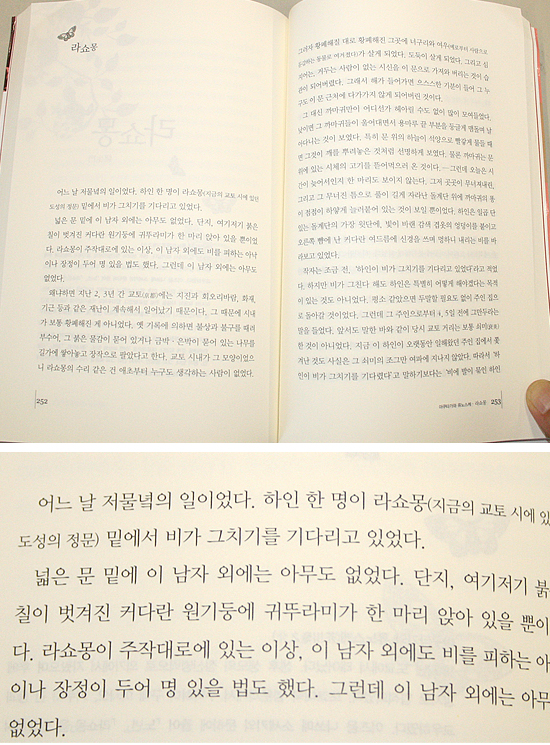 라쇼몽
어느 날 저물녘의 일이었다. 하인 한 명이 라쇼몽(지금의 교토 시에 있던
도성의 정문) 밑에서 비가 그치기를 기다리고 있었다.
넓은 문 밑에 이 남자 외에는 아무도 없었다. 단지, 여기저기 붉은
칠이 벗겨진 커다란 원기둥에 귀뚜라미가 한 마리 앉아 있을 뿐이었
다. 라쇼몽이 주작대로에 있는 이상, 이 남자 외에도 비를 피하는 아낙
이나 장정이 두어 명 있을 법도 했다. 그런데 이 남자 외에는 아무도
없었다.
왜냐하면 지난 2, 3년 간 교토(京都)에는 지진과 회오리바람, 화재,
기근 등과 같은 재난이 계속해서 일어났기 때문이다. 그 때문에 시내
가 보통 황폐해진 게 아니었다. 옛 기록에 의하면 불상과 불구를 때려
부수어, 그 붉은 물감이 묻어 있거나 금박·은박이 묻어 있는 나무를
길가에 쌓아놓고 장작으로 팔았다고 한다. 교토 시내가 그 모양이었으
니 라쇼몽의 수리 같은 건 애초부터 누구도 생각하는 사람이 없었다.
252
그러자 황폐해질 대로 황폐해진 그곳에 너구리와 여우(예로부터 사람으로
둔갑하는 동물로 여겨졌다)가 살게 되었다. 도둑이 살게 되었다. 그리고 심
지어는, 거두는 사람이 없는 시신을 이 문으로 가져와 버리는 것이 습
관이 되어버렸다. 그래서 해가 들어가면 으스스한 기분이 들어 그 누
구도 이 문 근처에 다가가지 않게 되어버린 것이다.
그 대신 까마귀만이 어디선가 헤아릴 수도 없이 많이 모여들었다.
낮이면 그 까마귀들이 울어대면서 용마루 끝 부분을 둥글게 맴돌며 날
아다니는 것이 보였다. 특히 문 위의 하늘이 석양으로 빨갛게 물들 때
면 그것이 깨를 뿌려놓은 것처럼 선명하게 보였다. 물론 까마귀는 문
위에 있는 시체의 고기를 뜯어먹으러 온 것이다.―그런데 오늘은 시
간이 늦어서인지 한 마리도 보이지 않는다. 그저 곳곳이 무너져내린,
그리고 그 무너진 틈으로 풀이 길게 자라난 돌계단 위에 까마귀의 똥
이 점점이 하얗게 늘러붙어 있는 것이 보일 뿐이었다. 하인은 일곱 단
있는 돌계단의 가장 윗단에, 빛이 바랜 감색 겹옷의 엉덩이를 붙이고
오른쪽 뺨에 난 커다란 여드름에 신경을 쓰며 멍하니 내리는 비를 바
라보고 있었다.
작자는 조금 전, '하인이 비가 그치기를 기다리고 있었다'라고 적었
다. 하지만 비가 그친다 해도 하인은 특별히 어떻게 해야겠다는 목적
이 있는 것도 아니었다. 평소 같았으면 두말할 필요도 없이 주인 집으
로 돌아갈 것이었다. 그런데 그 주인으로부터 4, 5일 전에 그만두라는
말을 들었다. 앞서도 말한 바와 같이 당시 교토 거리는 보통 쇠미(衰微)
한 것이 아니었다. 지금 이 하인이 오랫동안 일해왔던 주인 집에서 쫓
겨난 것도 사실은 그 쇠미의 조그만 여파에 지나지 않았다. 따라서 '하
인이 비가 그치기를 기다렸다'고 말하기보다는 '비에 발이 묶인 하인
라쇼몽 253
어느 날 저물녘의 일이었다. 하인 한 명이 라쇼몽(지금의 교토 시에 있
도성의 정문) 밑에서 비가 그치기를 기다리고 있었다.
넓은 문 밑에 이 남자 외에는 아무도 없었다. 단지, 여기저기 붉
칠이 벗겨진 커다란 원기둥에 귀뚜라미가 한 마리 앉아 있을 뿐이
다. 라쇼몽이 주작대로에 있는 이상, 이 남자 외에도 비를 피하는 아
이나 장정이 두어 명 있을 법도 했다. 그런데 이 남자 외에는 아무
없었다.